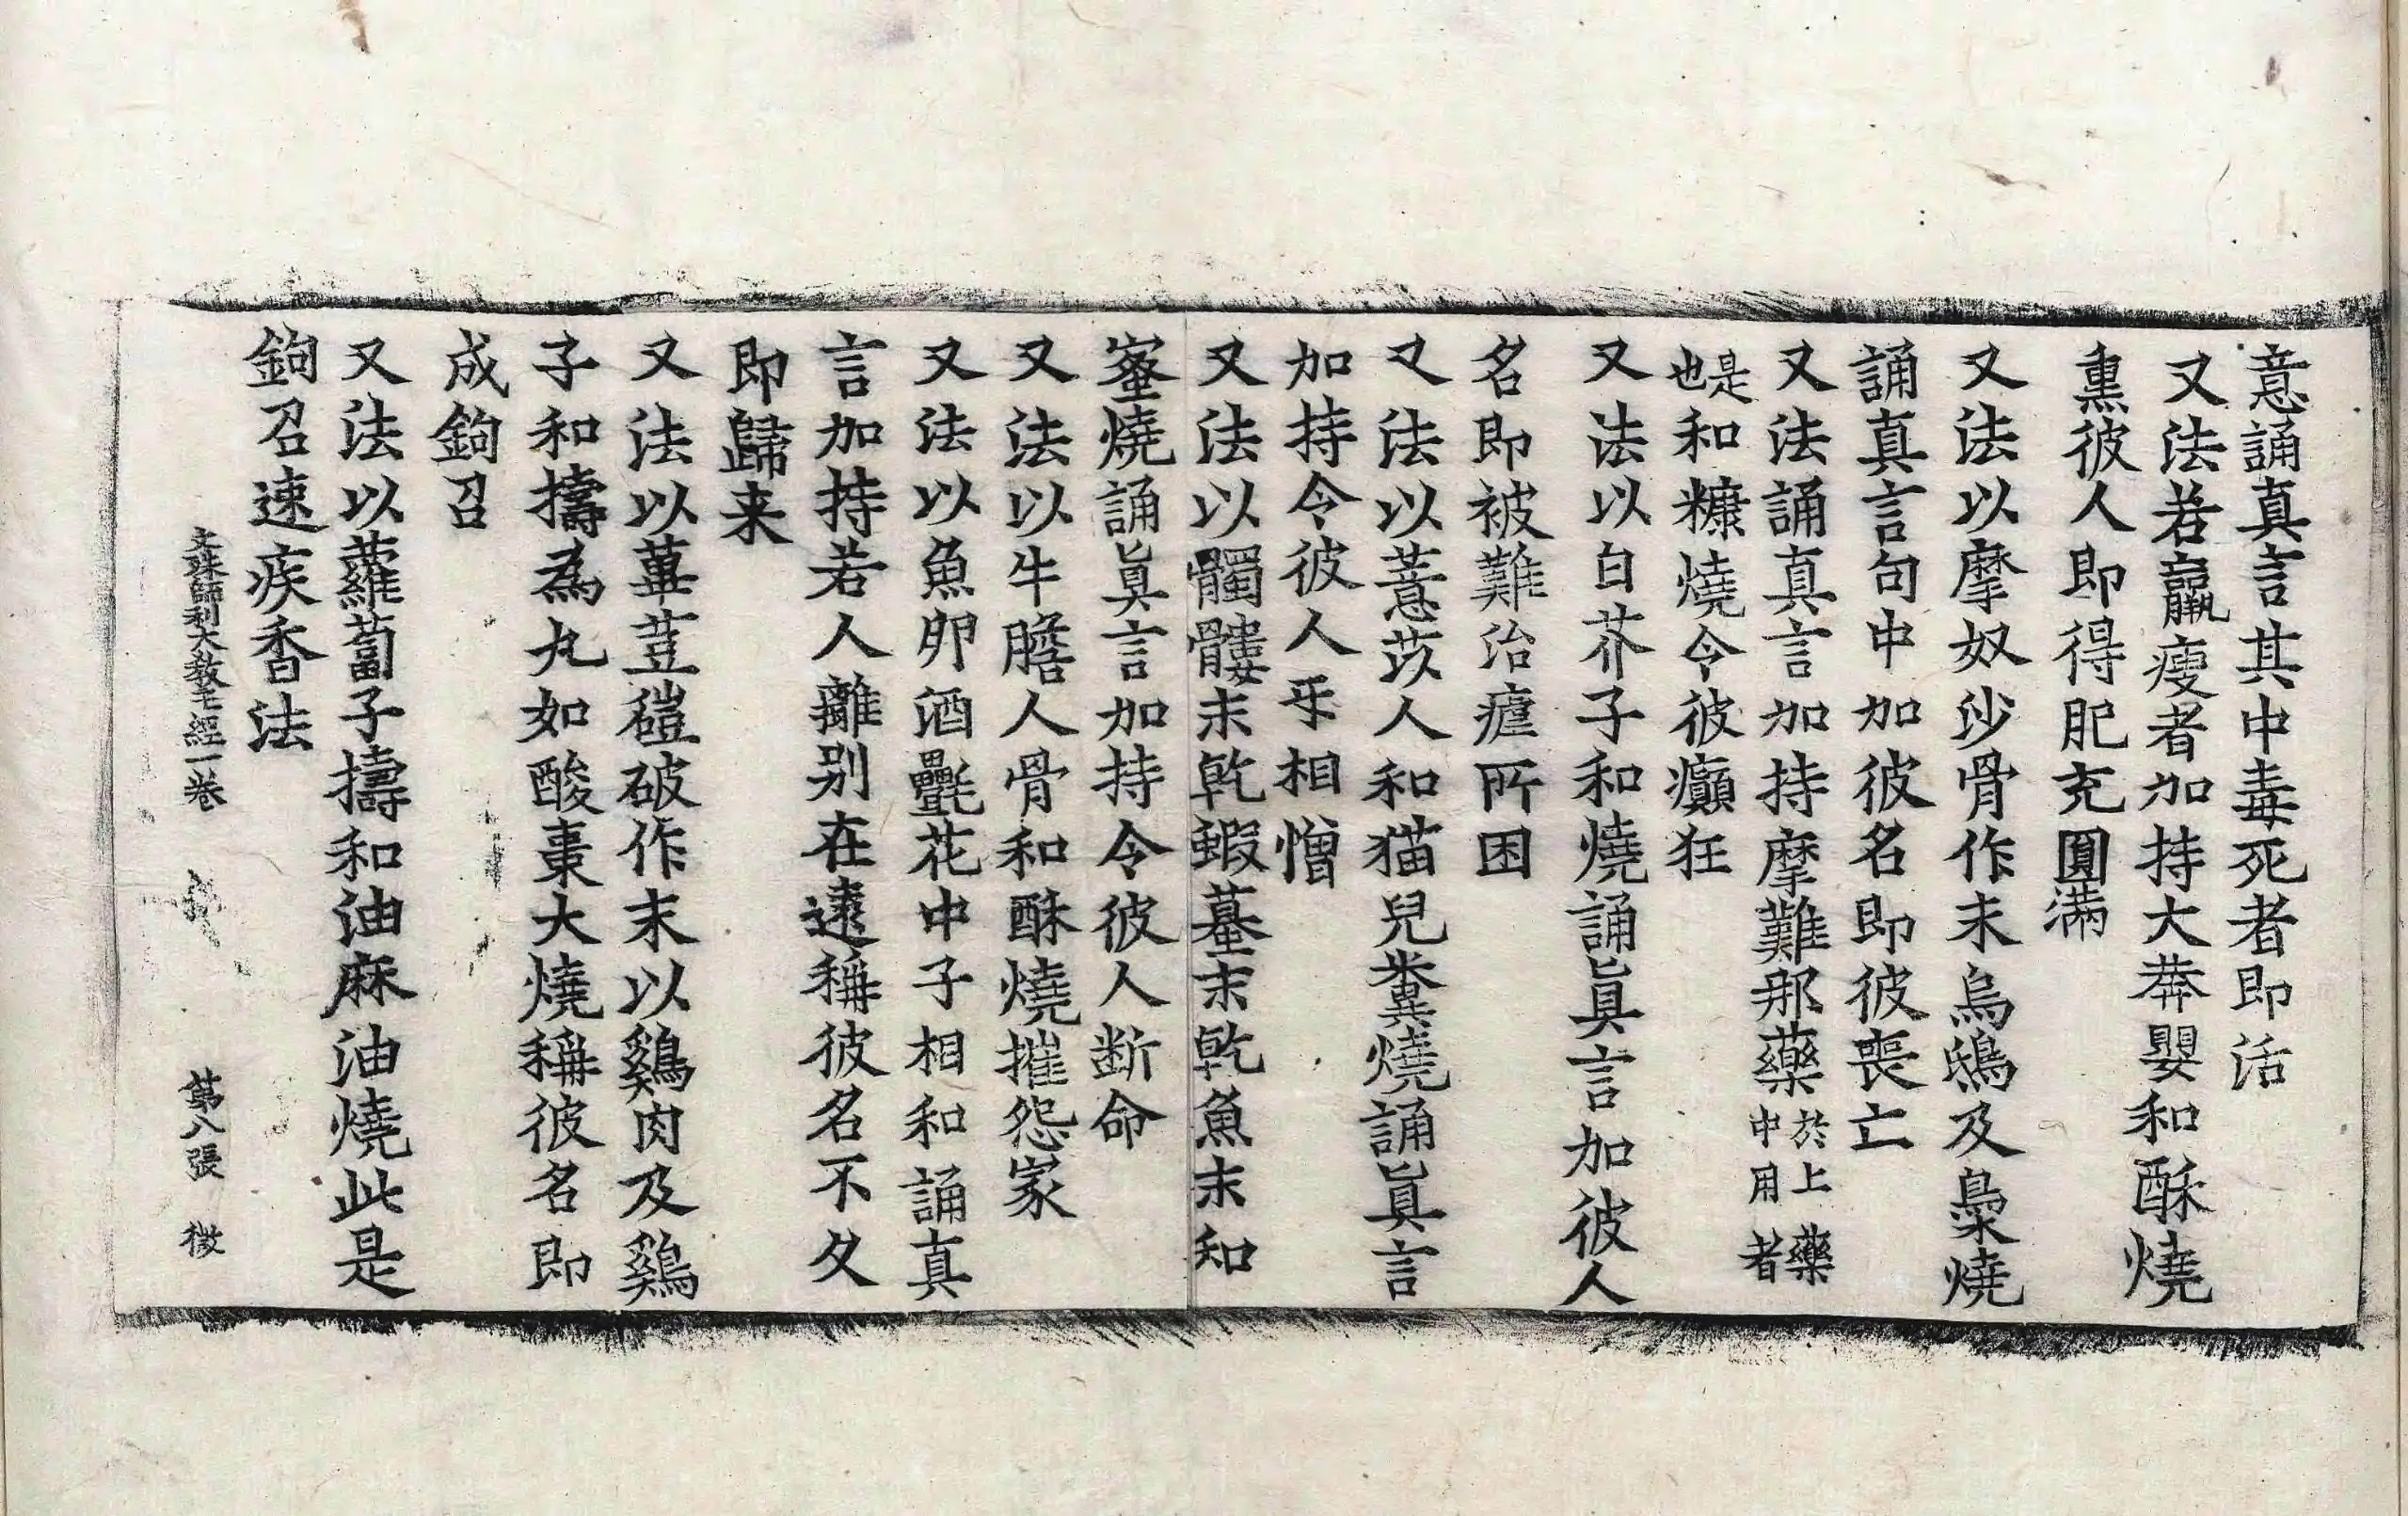 意誦真言其中毒死者即活
又法若羸瘦者加持大莾嬰和酥燒
熏彼人即得肥充圓滿
又法以摩奴沙骨作末烏鴟及梟燒
誦真言句中加彼名即彼喪亡
又法誦真言加持摩難那藥於上藥中用者
是也和糠燒令彼癲狂
又法以白芥子和燒誦眞言加彼人
名即被難治瘧所困
又法以薏苡人和猫兒糞燒誦眞言
加持令彼人乎相憎
又法以髑髏末乾蝦蟇末乾魚末和
蜜燒誦眞言加持令彼人断命
又法以牛膽人骨和酥燒摧怨家
又法以魚卵酒氎花中子相和誦真
言加持若人離别在遠稱彼名不久
即歸来
又法以蓽荳磑破作末以鷄肉及鷄
子和擣為丸如酸棗大燒稱彼名即
成鉤召
又法以蘿蔔子擣和油麻油燒此是
鉤召速疾香法
文殊師利大教王經一卷 第八張 微